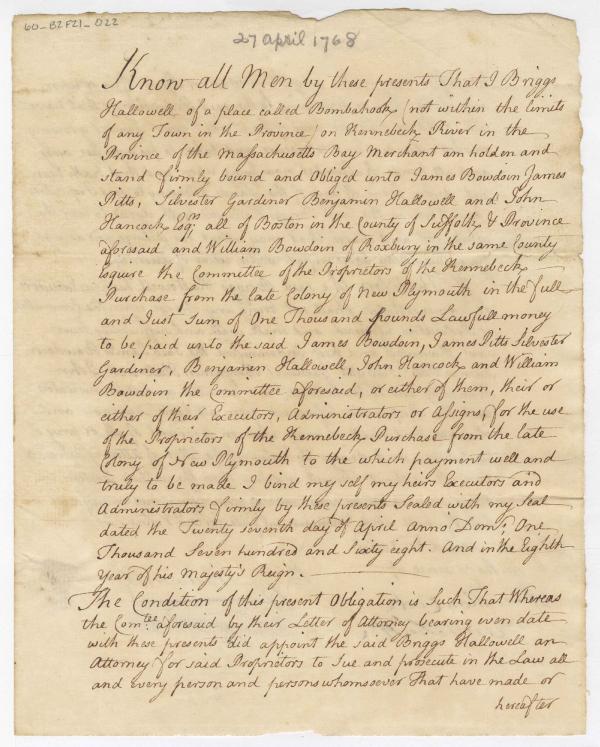 60_B2F21_022
27 april 1768
Know all Men by these presents That I Briggs
Hallowell of a place called Bombahook (not within the limits
of any Town in the Province) on Kennebeck River in the
Province of the Massachusetts Bay Merchant am holden and
stand firmly bound and Obliged unto James Bowdoin James
Pitts, Silvester Gardiner Benjamin Hallowell and John
Hancock Esqrs all of Boston in the County of Suffolk & Province
aforesaid and William Bowdoin of Roxbury in the same County
Esquire the Committee of the Proprietors of the Kennebeck
Purchase from the late Colony of New Plymouth in the full
and Just sum of One Thousand pounds Lawfull money
to be paid unto the said James Bowdoin, James Pitts Silvester
Gardiner, Benjamin Hallowell, John Hancock and William
Bowdoin the Committee aforesaid, or either of them, their or
either of their Executors, Administrators or Assigns, for the use
of the Proprietors of the Kennebeck Purchase from the late
Colony of New Plymouth to the which payment well and
truly to be made I bind my self my heirs Executors and
Administrators firmly by these presents Sealed with my Seal
dated the Twenty seventh day of April Anno Domi. One
Thousand Seven hundred and Sixty eight. And in the Eighth
Year of his Majesty's Reign.
The Condition of this present Obligation is Such That Whereas
the Comtee aforesaid by their Letter of Attorney bearing even date
with these presents did appoint the said Briggs Hallowell an
Attorney for said Proprietors to Sue and prosecute in the Law all
and every person and persons whomsoever That have made or
hereafter